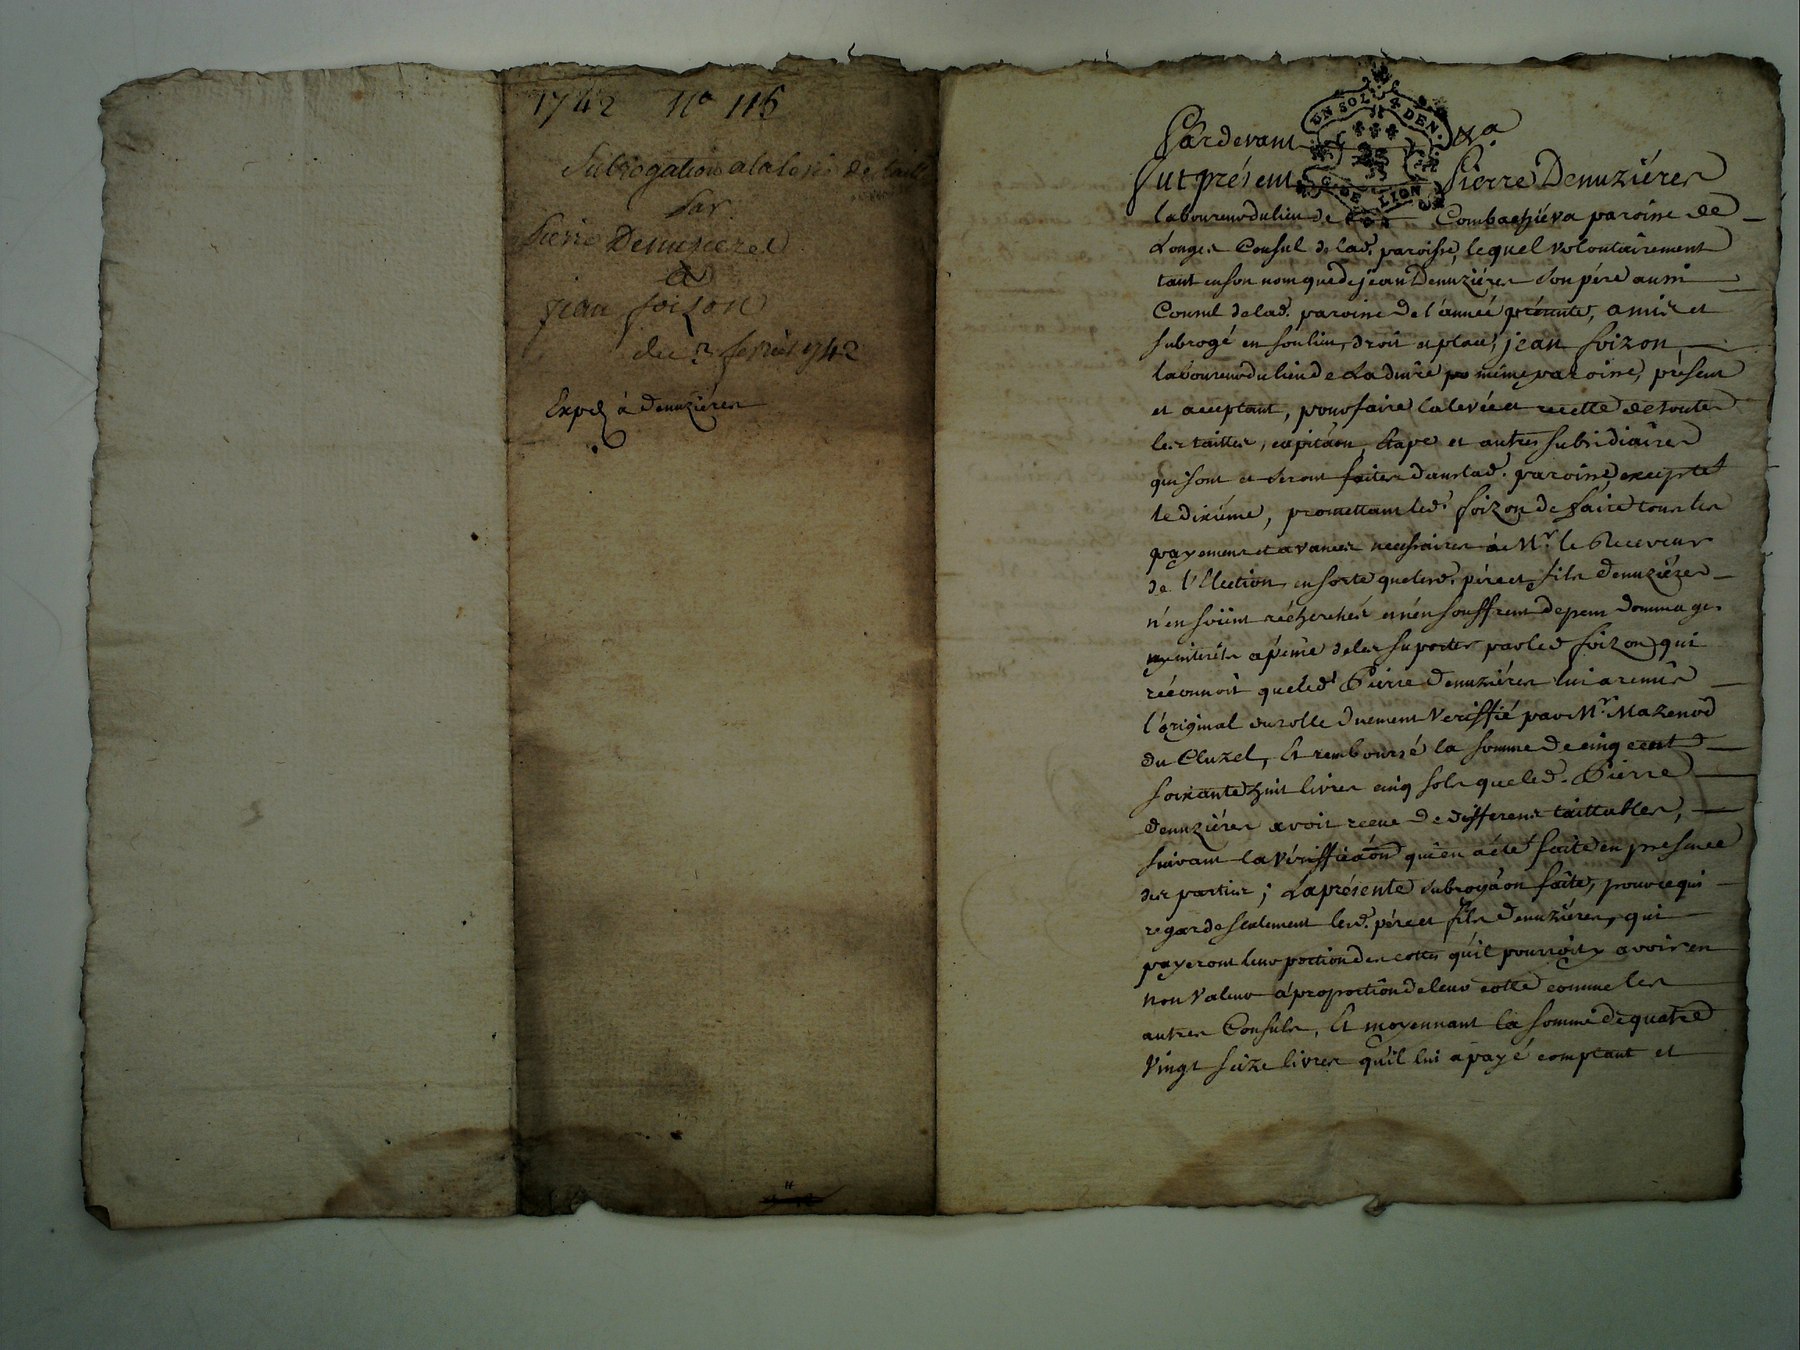 1742 N° 116
Subrogation a la levée de taille
Par
Pierre Demuzierel
a
jean foison
du 2 fevrier 1742
Exped à Demuziéres
UN SOL 4 DEN.
G. DE LION
Pardevant &a
fut présent Pierre Demuziéres
laboureur du lieu de Combachiéva paroisse de
Longes Consul de lad. paroisse, lequel volontairement
tant en son nom que de jean Demuziéres son pére aussi
Consul de lad. paroisse de l'année présente, a mis et
subrogé en son lieu, droit et place, jean foizon
laboureur du lieu de même paroisse, présent
et acceptant, pour faire la levée et recette de toutes
les tailles, capitãon, Etape et autres subsidiaires
qui sont et seront faites dans lad. paroisse excepté
le dixiéme, promettant led. foizon de faire tous les
payemens et avances necessaires à Mr. le Receveur
de l'Election en sorte que lesd. pére et fils Demuziéres
n'en soient réchérchés et n'en souffrent dépens dommages
interéts a péine de les suporter par led foizon, qui
réconnoit que led. Pierre Demuziéres lui a remis
l'original du rolle duement veriffié par Mr. Mazenod
du Cluzel, Et remboursé la somme de cinq cent
soixante huit livres cinq sols que led. Pierre
Demuziéres avoit receu de differens taillables,
suivant la vériffiçãon qui en a été faite en presence
des parties; La présente subrogãon faite, pour ce qui
regarde seulement lesd. pére et fils Demuziéres, qui
payeront leur portion des cottes qu'il pourroit y avoir en
non valeur a proportion de leur cotte comme les
autres Consuls, Et moyennant la somme de quatre
vingt seize livres qu'il lui a payé comptant et